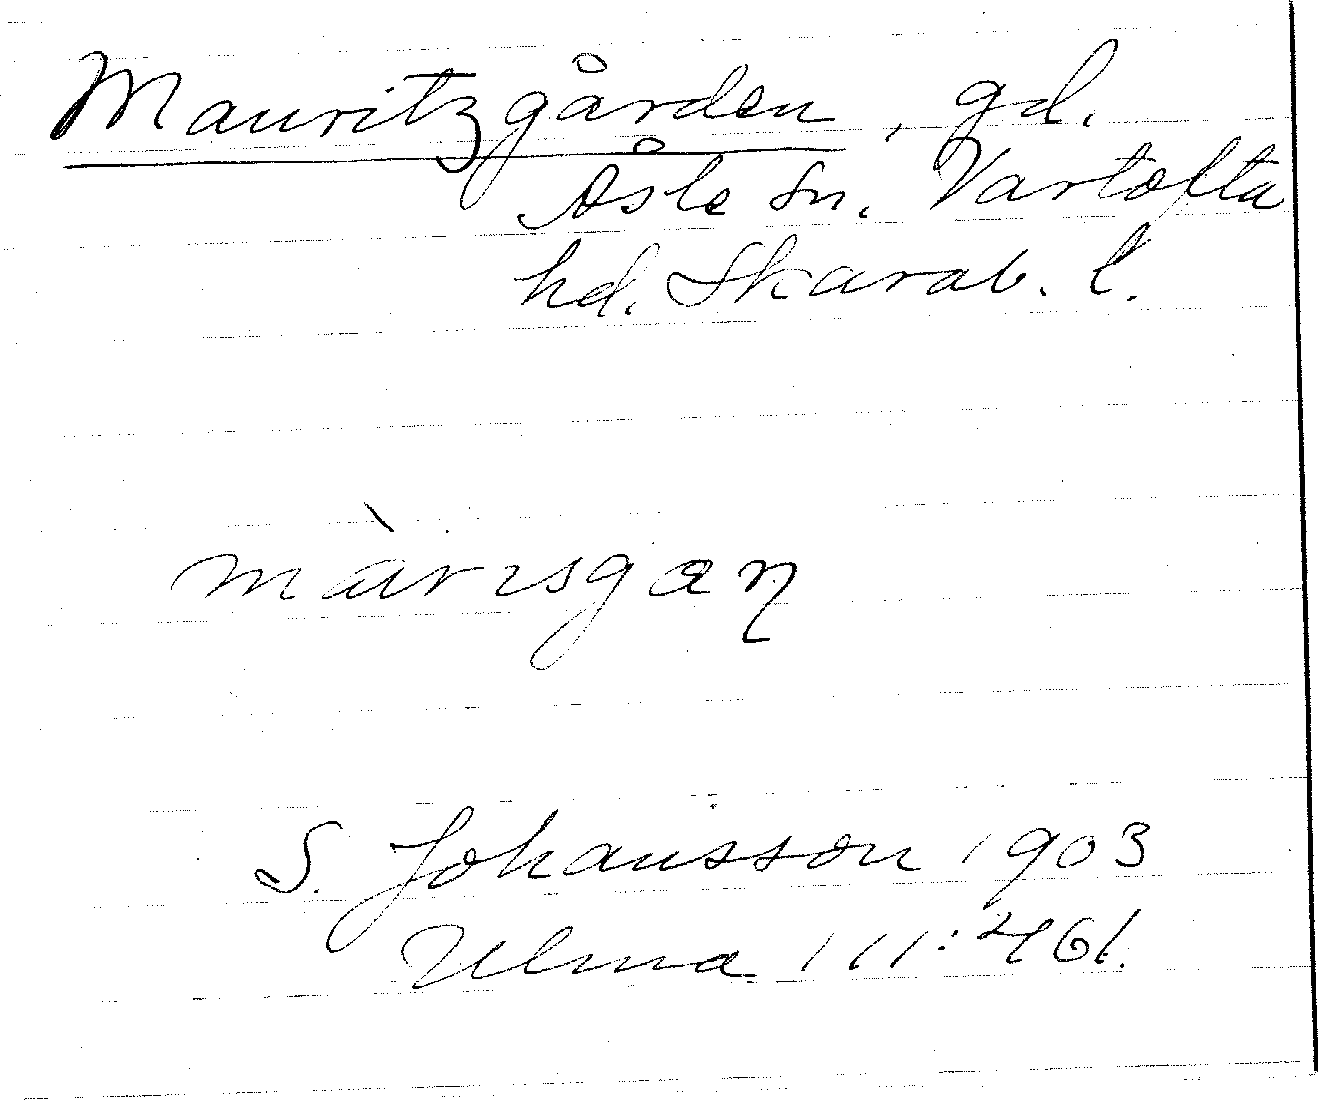 Mauritzgården, gd.
Åsle sn. Vartofta
hd. Skarab. l.
màrɪsgaɳ
S. Johansson 1903
Ulma 111:461.